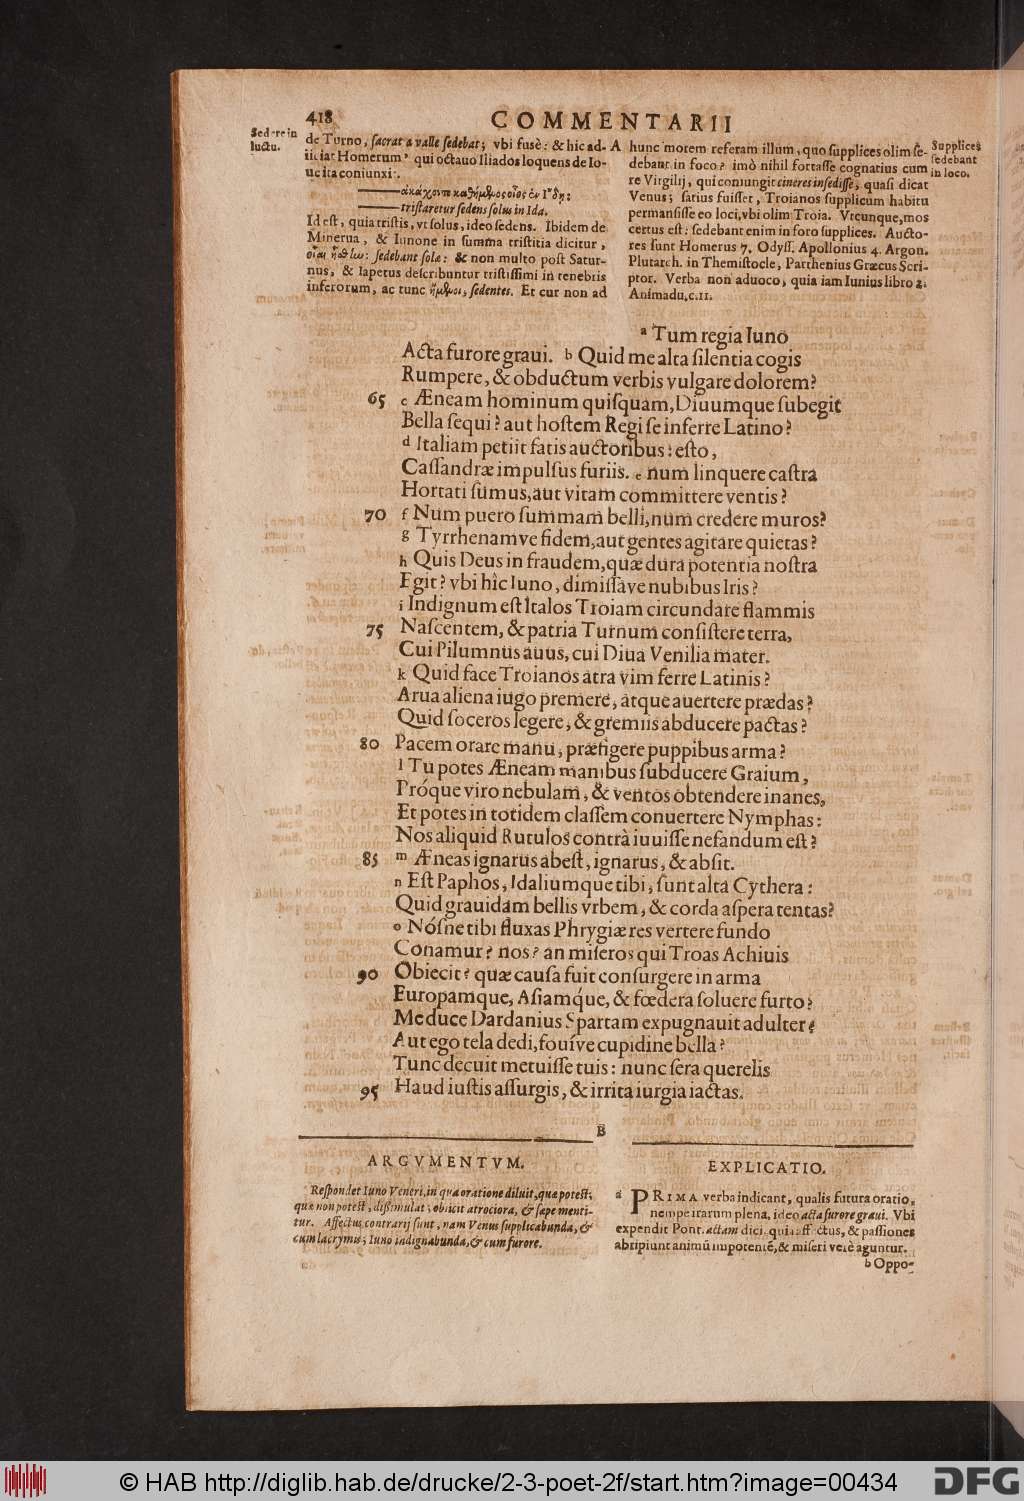 418
COMMENTARII
Sedere in
luctu.
de Turno, ſacrata valle ſedebat; vbi fusè: & hic ad-
iiciat Homerum, qui octauo Iliados loquens de Io-
ue ita coniunxit.
ἀκάχοντο καθήμενος οἶος ἐν Ἴδῃ:
triſtaretur ſedens ſolus in Ida.
Id eſt, quia triſtis, vt ſolus, ideo ſedens. Ibidem de
Minerua, & Iunone in ſumma triſtitia dicitur,
ſedebant ſolæ: & non multo poſt Satur-
nus, & Iapetus deſcribuntur triſtiſſimi in tenebris
inferorum, ac tunc ἥμενοι, ſedentes. Et cur non ad
A
hunc morem referam illum, quo ſupplices olim ſe-
debant in foco? imò nihil fortaſſe cognatius cum
re Virgilij, qui coniungit cineres inſediſſe, quaſi dicat
Venus; ſatius fuiſſet, Troianos ſupplicum habitu
permanſiſſe eo loci, vbi olim Troia. Vtcunque, mos
certus eſt: ſedebant enim in foro ſupplices. Aucto-
res ſunt Homerus 7. Odyſſ. Apollonius 4. Argon.
Plutarch. in Themiſtocle, Parthenius Græcus Scri-
ptor. Verba non aduoco, quia iam Iunius libro 2.
Animadu. c. 11.
Supplices
ſedebant
in loco.
a Tum regia Iuno
Acta furore graui. b Quid me alta ſilentia cogis
Rumpere, & obductum verbis vulgare dolorem?
65 c Æneam hominum quiſquam, Diuumque ſubegit
Bella ſequi? aut hoſtem Regi ſe inferre Latino?
d Italiam petiit fatis auctoribus: eſto,
Caſſandræ impulſus furiis. e num linquere caſtra
Hortati ſumus, aut vitam committere ventis?
70 f Num puero ſummam belli, num credere muros?
g Tyrrhenamve fidem, aut gentes agitare quietas?
h Quis Deus in fraudem, quæ dura potentia noſtra
Egit? vbi hîc Iuno, dimiſſave nubibus Iris?
i Indignum eſt Italos Troiam circundare flammis
75 Naſcentem, & patria Turnum conſiſtere terra,
Cui Pilumnus auus, cui Diua Venilia mater.
k Quid face Troianos atra vim ferre Latinis?
Arua aliena iugo premere, atque auertere prædas?
Quid ſoceros legere, & gremiis abducere pactas?
80 Pacem orare manu, præfigere puppibus arma?
l Tu potes Æneam manibus ſubducere Graium,
Próque viro nebulam, & ventos obtendere inanes,
Et potes in totidem claſſem conuertere Nymphas:
Nos aliquid Rutulos contrà iuuiſſe nefandum eſt?
85 m Æneas ignarus abeſt, ignarus, & abſit.
n Eſt Paphos, Idaliumque tibi, ſunt alta Cythera:
Quid grauidam bellis vrbem, & corda aſpera tentas?
o Nóſne tibi fluxas Phrygiæ res vertere fundo
Conamur? nos? an miſeros qui Troas Achiuis
90 Obiecit? quæ cauſa fuit conſurgere in arma
Europamque, Aſiamque, & fœdera ſoluere furto?
Me duce Dardanius Spartam expugnauit adulter?
Aut ego tela dedi, fouíve cupidine bella?
Tunc decuit metuiſſe tuis: nunc ſera querelis
95 Haud iuſtis aſſurgis, & irrita iurgia iactas.
B
ARGVMENTVM.
Reſpondet Iuno Veneri, in qua oratione diluit, quæ poteſt;
quæ non poteſt, diſſimulat; obiicit atrociora, & ſæpe menti-
tur. Affectus contrarij ſunt, nam Venus ſupplicabunda, &
cum lacrymis; Iuno indignabunda, & cum furore.
EXPLICATIO.
a PRIMA verba indicant, qualis futura oratio,
nempe irarum plena, ideo acta furore graui. Vbi
expendit Pont. actam dici, quia affectus, & paſſiones
abripiunt animũ impotentẽ, & miſeri verè aguntur.
b Oppo-
© HAB http://diglib.hab.de/drucke/2-3-poet-2f/start.htm?image=00434
DFG